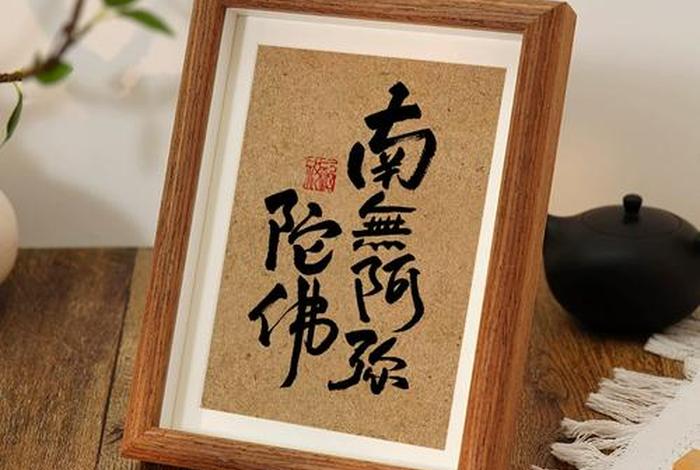 南無阿弥
陀佛